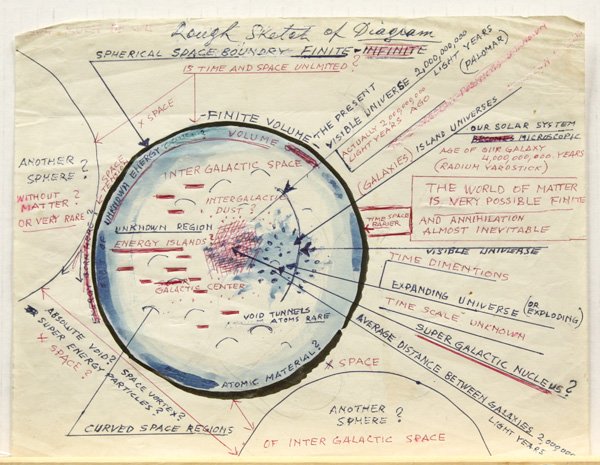 Rough Sketch of Diagram
SPHERICAL SPACE BOUNDRY FINITE - INFINITE
IS TIME AND SPACE UNLMITED?
X SPACE
FINITE VOLUME
THE PRESENT
VISIBLE UNIVERSE 2,000,000,000
LIGHT YEARS
(PALOMAR)
ACTUALLY 2,000,000,000
LIGHT YEARS AGO
(GALAXIES) ISLAND UNIVERSES
OUR SOLAR SYSTEM
BECOMES MICROSCOPIC
AGE OF OUR GALAXY
4,000,000,000. YEARS
(RADIUM YARDSTICK)
THE WORLD OF MATTER
IS VERY POSSIBLE FINITE
AND ANNIHILATION
ALMOST INEVITABLE
TIME SPACE
BARIER
ANOTHER
SPHERE?
WITHOUT?
MATTER.
OR VERY RARE
UNKNOWN ENERGY
VOLUME
INTER GALACTIC SPACE
INTERGALACTIC
DUST?
UNKNOWN REGION
ENERGY ISLANDS
GALACTIC CENTER
VOID TUNNELS
ATOMS RARE
ATOMIC MATERIAL?
VISIBLE UNIVERSE
TIME DIMENTIONS
EXPANDING UNIVERSE (OR EXPLODING)
TIME SCALE UNKNOWN
SUPER GALACTIC NUCLEUS?
AVERAGE DISTANCE BETWEEN GALAXIES 2,000,000
LIGHT YEARS
ABSOLUTE VOID? SPACE VORTEX?
SUPER ENERGY PARTICLES?
+ SPACE?
CURVED SPACE REGIONS
X SPACE
ANOTHER
SPHERE?
OF INTER GALACTIC SPACE